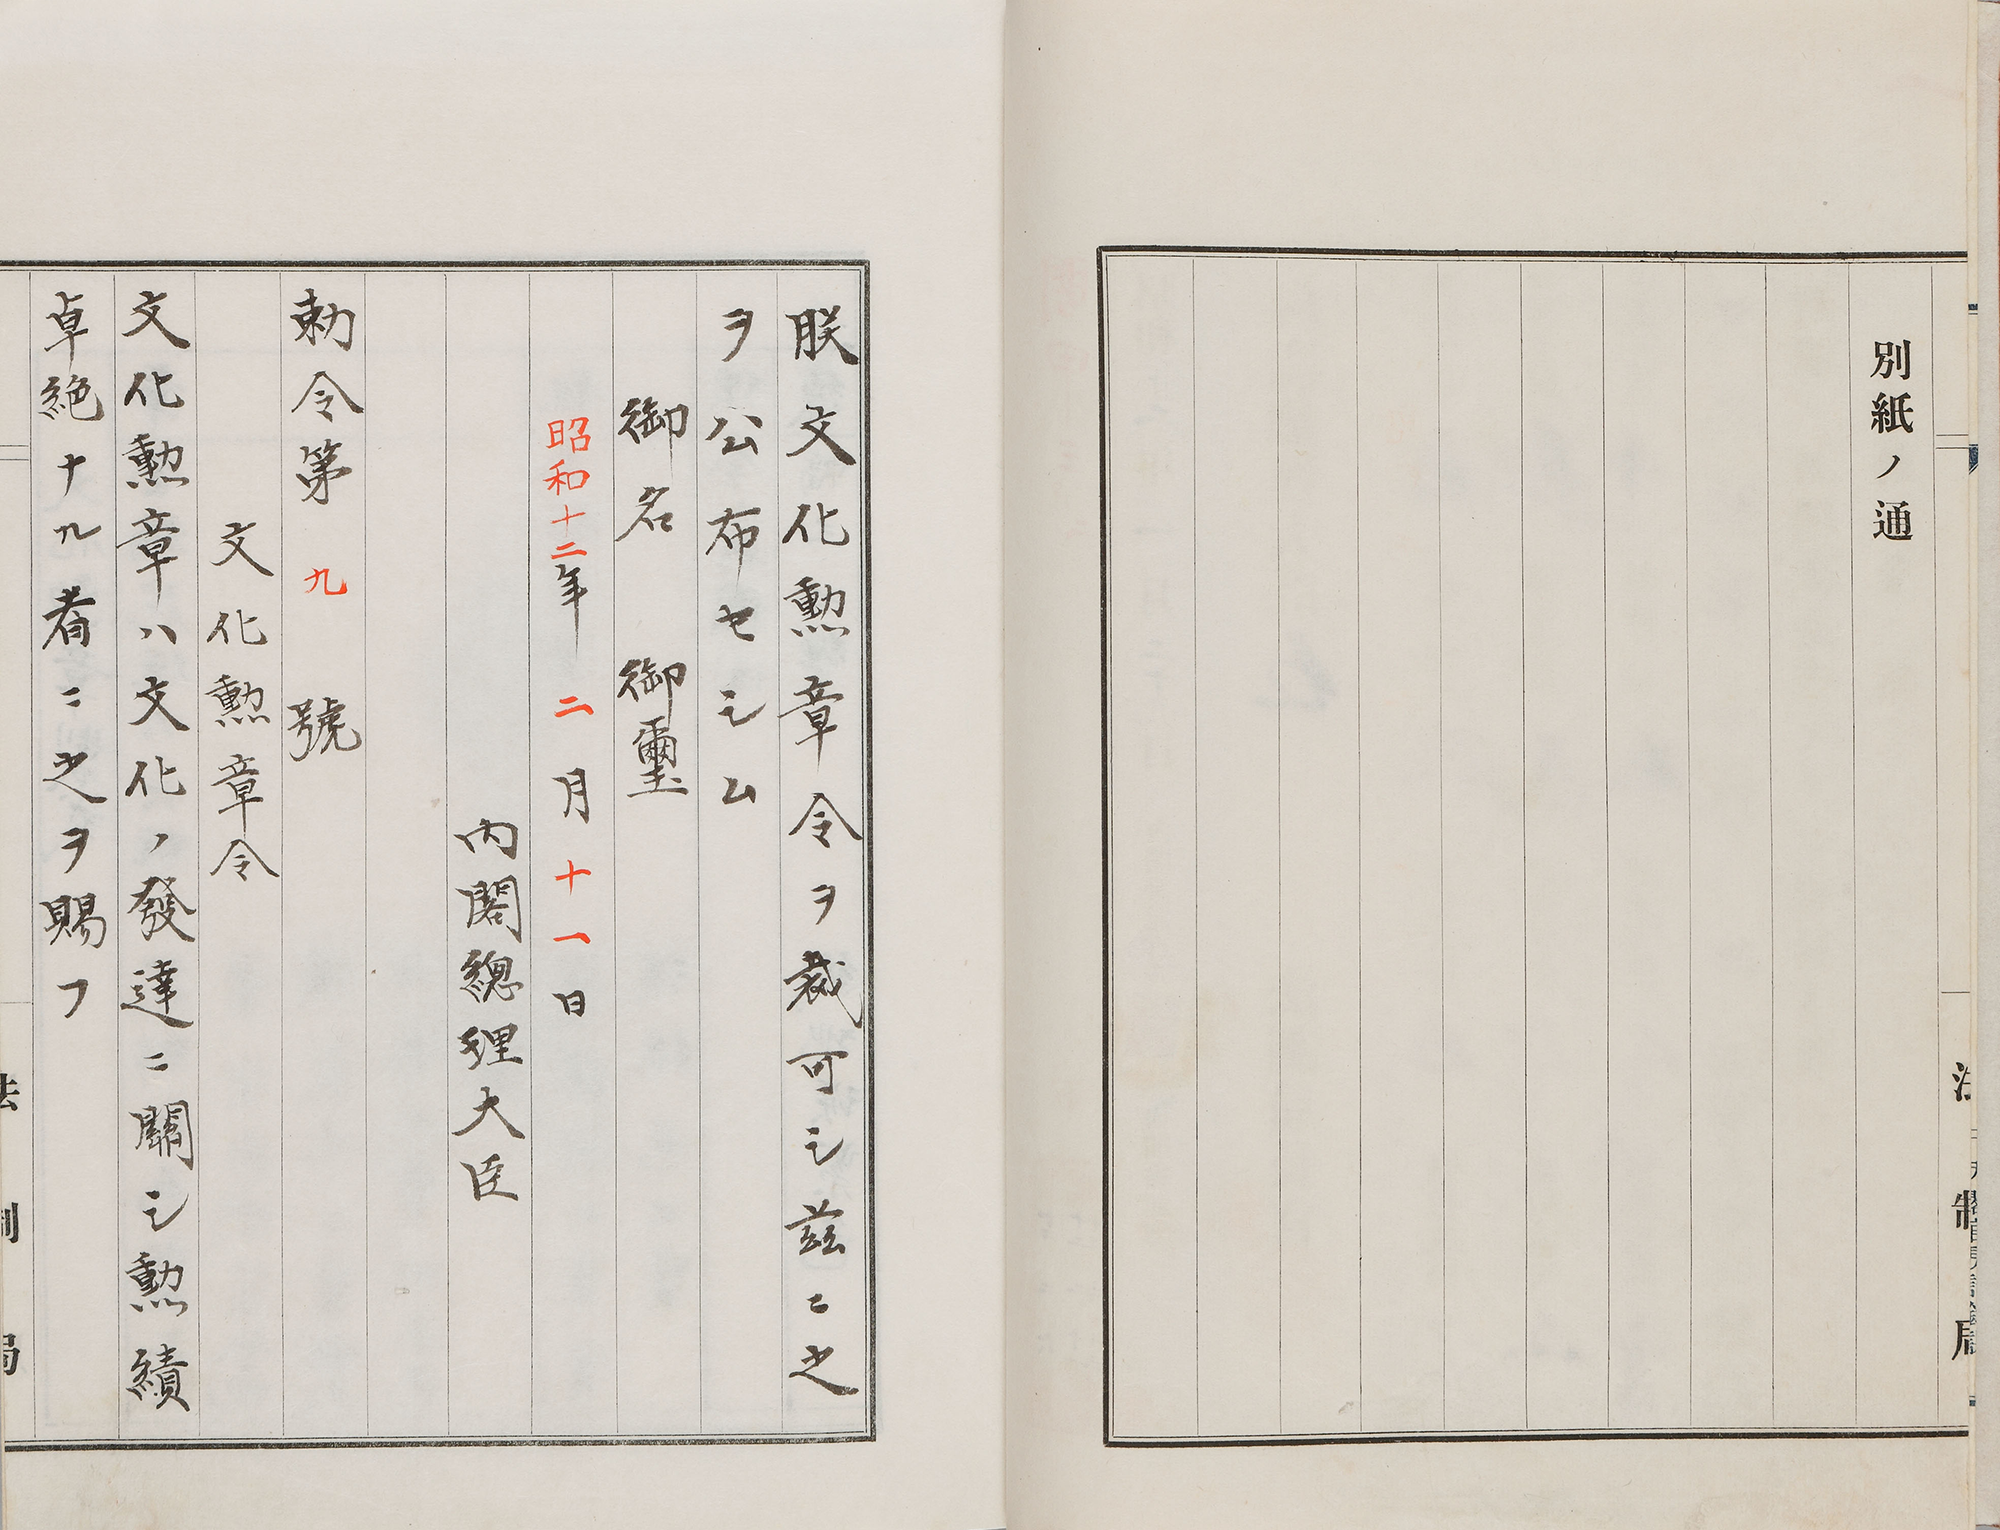 別紙ノ通
法制局
朕文化勲章令ヲ裁可シ茲ニ之
ヲ公布セシム
御名 御璽
昭和十二年 二月十一日
内閣總理大臣
勅令第 九 號
文化勲章令
文化勲章ハ文化ノ發達ニ關シ勲績
卓絶ナル者ニ之ヲ賜フ
法制局